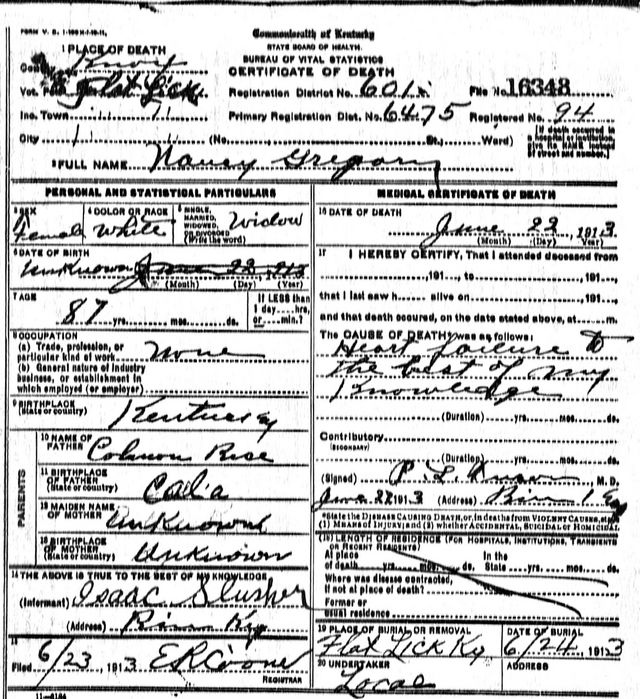 FORM V. S. 1-100M-1-10-11.
Commonwealth of Kentucky
STATE BOARD OF HEALTH.
BUREAU OF VITAL STATISTICS
CERTIFICATE OF DEATH
1 PLACE OF DEATH
County Knox
Vot. Pct. Flat Lick
Inc. Town
City (No. St., Ward)
Registration District No. 601
File No. 16348
Primary Registration Dist. No. 6475
Registered No. 94
[If death occurred in a hospital or institution, give its NAME instead of street and number.]
2 FULL NAME Nancy Gregory
PERSONAL AND STATISTICAL PARTICULARS
3 SEX
Female
4 COLOR OR RACE
White
5 SINGLE, MARRIED, WIDOWED, OR DIVORCED (Write the word)
Widow
6 DATE OF BIRTH
Unknown June 22 1913
(Month) (Day) (Year)
7 AGE
87 yrs. mos. ds.
If LESS than 1 day hrs. or min.?
8 OCCUPATION
(a) Trade, profession, or particular kind of work None
(b) General nature of industry business, or establishment in which employed (or employer)
9 BIRTHPLACE
(State or country) Kentucky
PARENTS
10 NAME OF FATHER
11 BIRTHPLACE OF FATHER (State or country)
12 MAIDEN NAME OF MOTHER Unknown
13 BIRTHPLACE OF MOTHER (State or country) Unknown
14 THE ABOVE IS TRUE TO THE BEST OF MY KNOWLEDGE
(Informant) Isaac Slusher
(Address) Ky
15
Filed 6/23, 1913
REGISTRAR
11-6184
MEDICAL CERTIFICATE OF DEATH
16 DATE OF DEATH
June 22, 1913
(Month) (Day) (Year)
17 I HEREBY CERTIFY, That I attended deceased from
191 , to , 191 ,
that I last saw h alive on , 191 ,
and that death occured, on the date stated above, at m.
The CAUSE OF DEATH* was as follows:
Heart failure to
the best of my
Knowledge
(Duration) yrs. mos. ds.
Contributory
(SECONDARY)
(Duration) yrs. mos. ds.
(Signed) M. D.
June 22 1913 (Address)
*State the DISEASE CAUSING DEATH, or, in deaths from VIOLENT CAUSES, state
(1) MEANS OF INJURY; and (2) whether ACCIDENTAL, SUICIDAL or HOMICIDAL
(18) LENGTH OF RESIDENCE (FOR HOSPITALS, INSTITUTIONS, TRANSIENTS
OR RECENT RESIDENTS)
At place of death yrs. mos. ds. In the State yrs. mos. ds.
Where was disease contracted,
If not at place of death?
Former or
usual residence
19 PLACE OF BURIAL OR REMOVAL
Flat Lick Ky
DATE OF BURIAL
6/24, 1913
20 UNDERTAKER
Local
ADDRESS